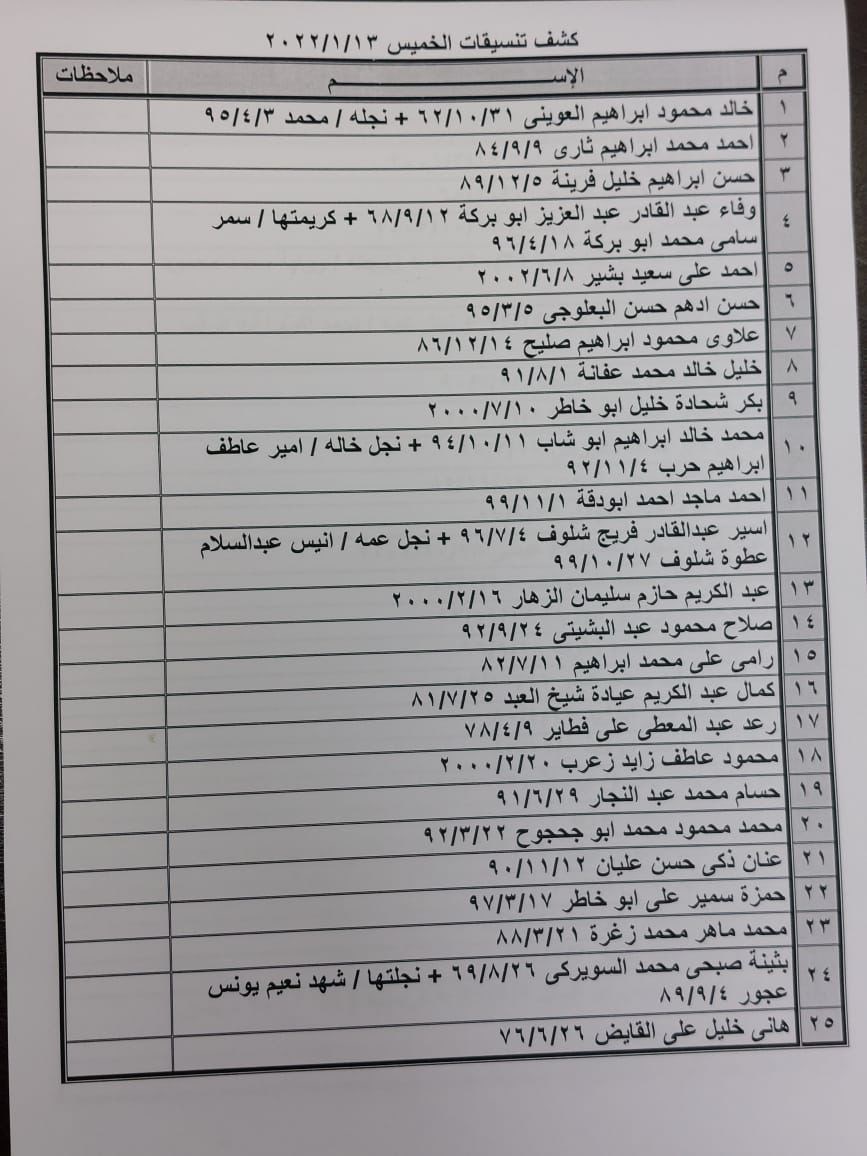 كشف تنسيقات الخميس ٢٠٢٢/١/١٣
م الإســـــــــم ملاحظات
١ خالد محمود ابراهيم العوينى ٦٢/١٠/٣١ + نجله / محمد ٩٥/٤/٣
٢ احمد محمد ابراهيم ثارى ٨٤/٩/٩
٣ حسن ابراهيم خليل فرينة ٨٩/١٢/٥
٤ وفاء عبد القادر عبد العزيز ابو بركة ٦٨/٩/١٢ + كريمتها / سمر
سامى محمد ابو بركة ٩٦/٤/١٨
٥ احمد على سعيد بشير ٢٠٠٢/٦/٨
٦ حسن ادهم حسن البعلوجى ٩٥/٣/٥
٧ علاوى محمود ابراهيم صليح ٨٦/١٢/١٤
٨ خليل خالد محمد عفانة ٩١/٨/١
٩ بكر شحادة خليل ابو خاطر ٢٠٠٠/٧/١٠
١٠ محمد خالد ابراهيم ابو شاب ٩٤/١٠/١١ + نجل خاله / امير عاطف
ابراهيم حرب ٩٢/١١/٤
١١ احمد ماجد احمد ابودقة ٩٩/١١/١
١٢ اسير عبدالقادر فريج شلوف ٩٦/٧/٤ + نجل عمه / انيس عبدالسلام
عطوة شلوف ٩٩/١٠/٢٧
١٣ عبد الكريم حازم سليمان الزهار ٢٠٠٠/٢/١٦
١٤ صلاح محمود عبد البشيتى ٩٢/٩/٢٤
١٥ رامى على محمد ابراهيم ٨٢/٧/١١
١٦ كمال عبد الكريم عيادة شيخ العبد ٨١/٧/٢٥
١٧ رعد عبد المعطى على فطاير ٧٨/٤/٩
١٨ محمود عاطف زايد زعرب ٢٠٠٠/٢/٢٠
١٩ حسام محمد عبد النجار ٩١/٦/٢٩
٢٠ محمد محمود محمد ابو جحجوح ٩٢/٣/٢٢
٢١ عنان ذكى حسن عليان ٩٠/١١/١٢
٢٢ حمزة سمير على ابو خاطر ٩٧/٣/١٧
٢٣ محمد ماهر محمد زغرة ٨٨/٣/٢١
٢٤ بثينة صبحى محمد السويركى ٦٩/٨/٢٦ + نجلتها / شهد نعيم يونس
عجور ٨٩/٩/٤
٢٥ هانى خليل على القايض ٧٦/٦/٢٦